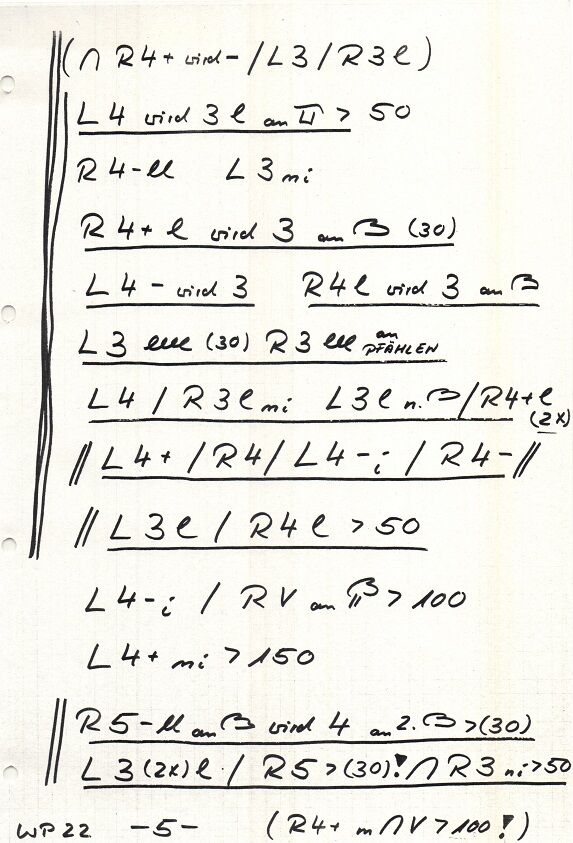 (∩ R4+ wird - / L3 / R3l)
L4 wird 3l an > 50
R4-ll L3 ni
R4+ l wird 3 an B (30)
L4- wird 3 R4l wird 3 an B
L3 lll (30) R3 lll an PFÄHLEN
L4 / R3l ni L3l n. B / R4+l (2x)
// L4+ / R4 / L4-i / R4- //
// L3l / R4l > 50
L4-i / RV an > 100
L4+ ni > 150
R5-ll an B wird 4 an 2. B > (30)
L3 (2x) l / R5 > (30)! ∩ R3 ni > 50
WP22 -5- (R4+ m ∩ V > 100!)